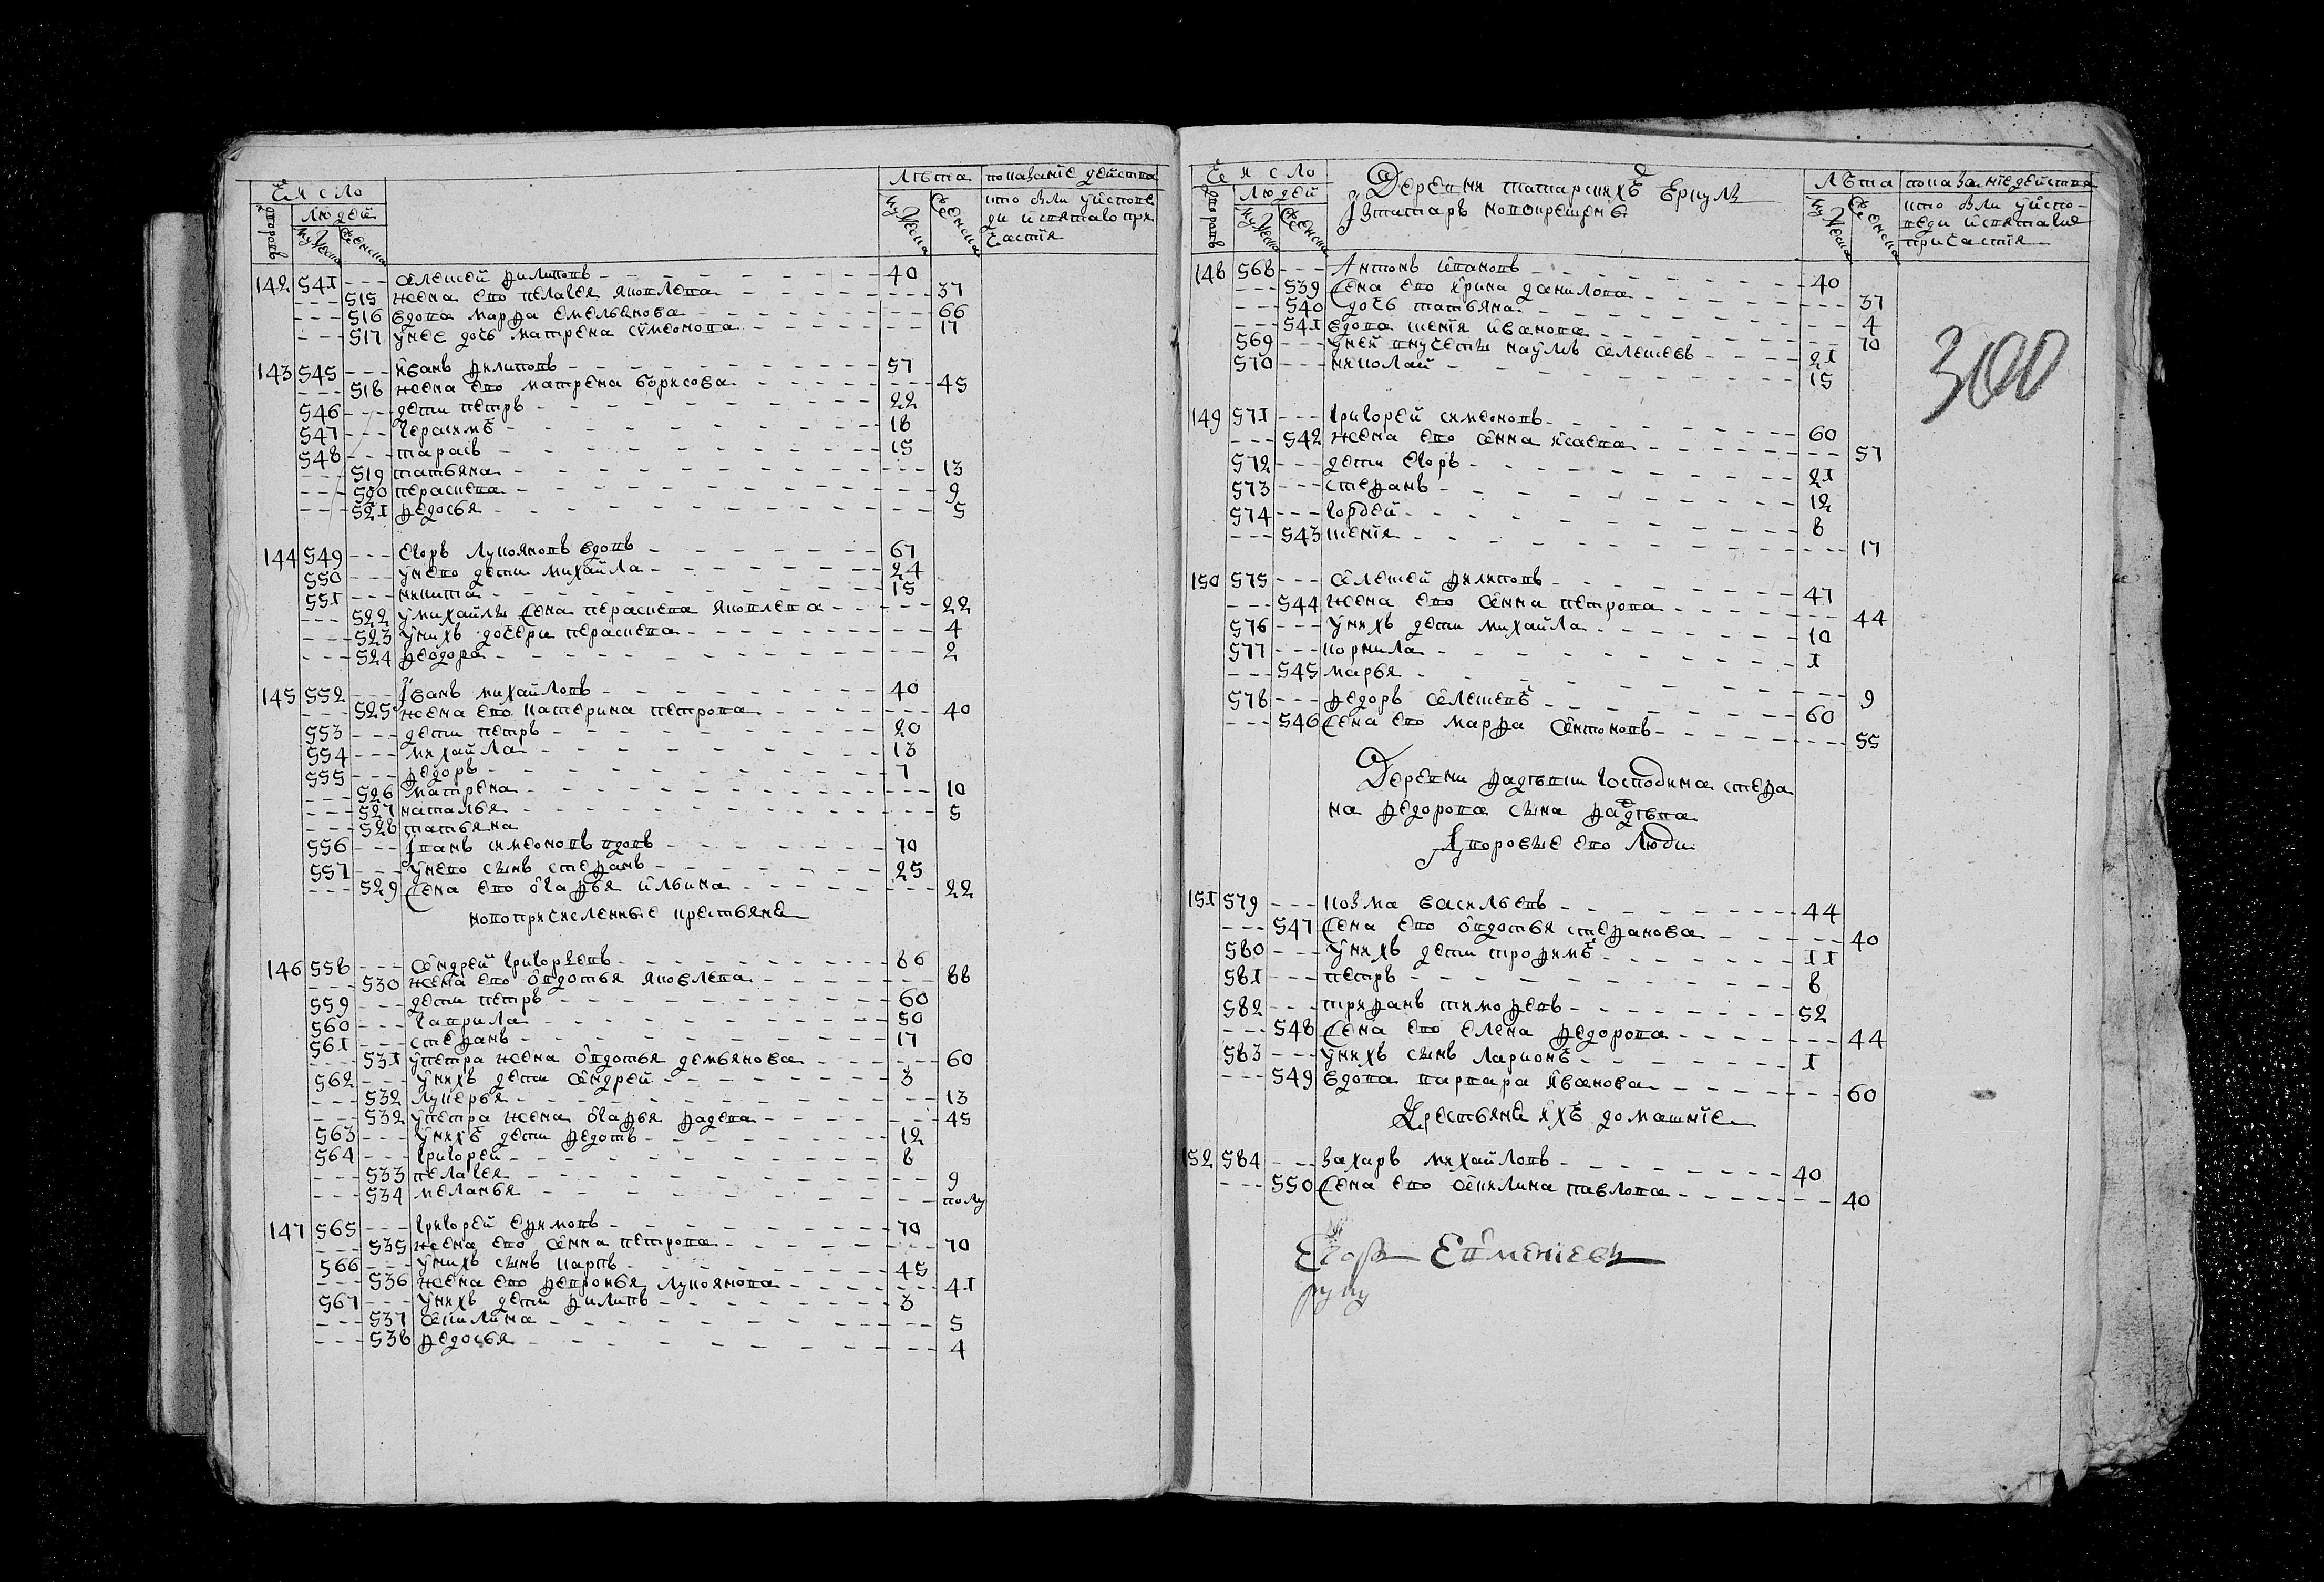 Число
Лѣта показание действа
дворовъ
Людей
мужеска
женска
мужеска
женска
кто были у испове
ди и святаго при
частия
142 541 --- алексей филиповъ --- 40
515 жена ево пелагея яковлева --- 37
516 вдова марфа емельянова --- 66
517 у нее дочь матрена симеонова --- 17
143 545 --- иванъ филиповъ --- 57
518 жена ево матрена борисова --- 45
546 --- дети петръ --- 22
547 --- герасимъ --- 18
548 --- тарасъ --- 15
519 татьяна --- 13
520 параскева --- 9
521 федосья --- 5
144 549 --- егоръ лукояновъ вдовъ --- 67
550 --- у него дети михайла --- 24
551 --- никита --- 15
522 у михайлы жена параскева яковлева --- 22
523 у нихъ дочери параскева --- 4
524 феодора --- 2
145 552 --- иванъ михайловъ --- 40
525 жена ево катерина петрова --- 40
553 --- дети петръ --- 20
554 --- михайла --- 13
555 --- федоръ --- 7
526 матрена --- 10
527 наталья --- 5
528 татьяна
556 --- иванъ симеоновъ вдовъ --- 70
557 --- у него сынъ стефанъ --- 25
529 жена ево агафья ильина --- 22
новопричисленные крестьяне
146 558 --- андрей григорьевъ --- 86
530 жена ево овдотья яковлева --- 88
559 --- дети петръ --- 60
560 --- гаврила --- 50
561 --- стефанъ --- 17
531 у петра жена овдотья демьянова --- 60
562 --- у нихъ дети андрей --- 3
532 лукерья --- 13
532 у петра жена огафья фадева --- 45
563 --- у нихъ дети федотъ --- 12
564 --- григорей --- 8
533 пелагея --- 9
534 меланья --- полу
147 565 --- григорей ефимовъ --- 70
535 жена ево анна петрова --- 70
566 --- у нихъ сынъ карпъ --- 45
536 жена ево февронья лукоянова --- 41
567 --- у нихъ дети филипъ --- 3
537 акилина --- 5
538 федосья --- 4
Число
Деревни татарскихъ Еркулъ
Лѣта показание действа
дворовъ
Людей
мужеска
женска
новокрещенъ
мужеска
женска
кто были у испо-
веди и святаго
причастия
148 568 --- Антонъ ивановъ --- 40
539 жена ево ирина данилова --- 37
540 дочь татьяна --- 4
541 вдова ксения иванова --- 70
569 --- у ней внучеты наумъ алексевъ --- 21
570 --- николай --- 15
300
149 571 --- григорей симеоновъ --- 60
542 жена ево анна исаева --- 57
572 --- дети егоръ --- 21
573 --- стефанъ --- 12
574 --- гордей --- 8
543 ксения --- 17
150 575 --- алексей филиповъ --- 47
544 жена ево анна петрова --- 44
576 --- у нихъ дети михайла --- 10
577 --- корнила --- 1
545 марья --- 9
578 --- федоръ алексевъ --- 60
546 жена ево марфа антоновъ --- 55
Деревни фадѣвки господина стефа
на федорова сына фадѣва
дворовые ево люди
151 579 --- козма васильевъ --- 44
547 жена ево овдотья стефанова --- 40
580 --- у нихъ дети трофимъ --- 11
581 --- петръ --- 8
582 --- трифанъ тимофевъ --- 52
548 жена ево елена федорова --- 44
583 --- у нихъ сынъ ларионъ --- 1
549 вдова варвара иванова --- 60
Крестьяне ихъ домашние
152 584 --- захаръ михайловъ --- 40
550 жена ево акилина павлова --- 40
руку